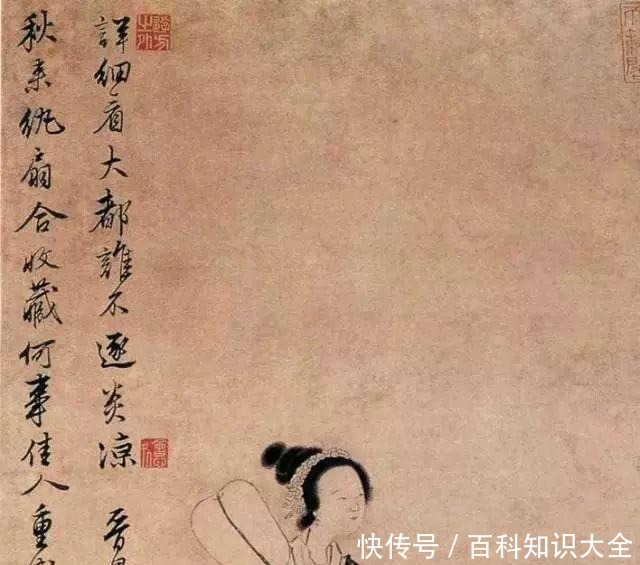 秋来紈扇合收藏何事佳人重
詳細看大都誰不逐炎凉 晉
快传号 / 百科知识大全